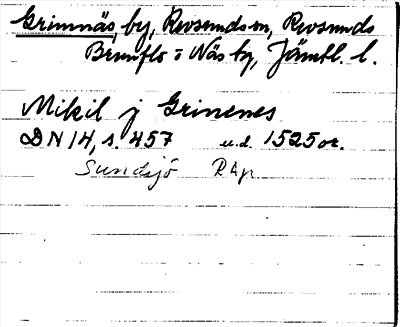 Grimnäs, by, Revsunds sn, Revsunds
Brunflo o Näs tg, Jämtl. l.
Mikil j Grinenes
DN 14, s. 457 u.d. 1525 or.
Sundsjö Rap